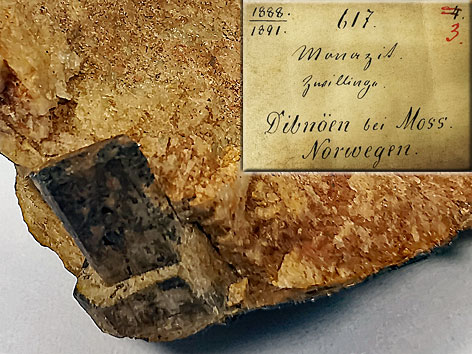 1888.
1891.
617.
3.
Monazit.
Zwillinge.
Dibnöen bei Moss.
Norwegen.